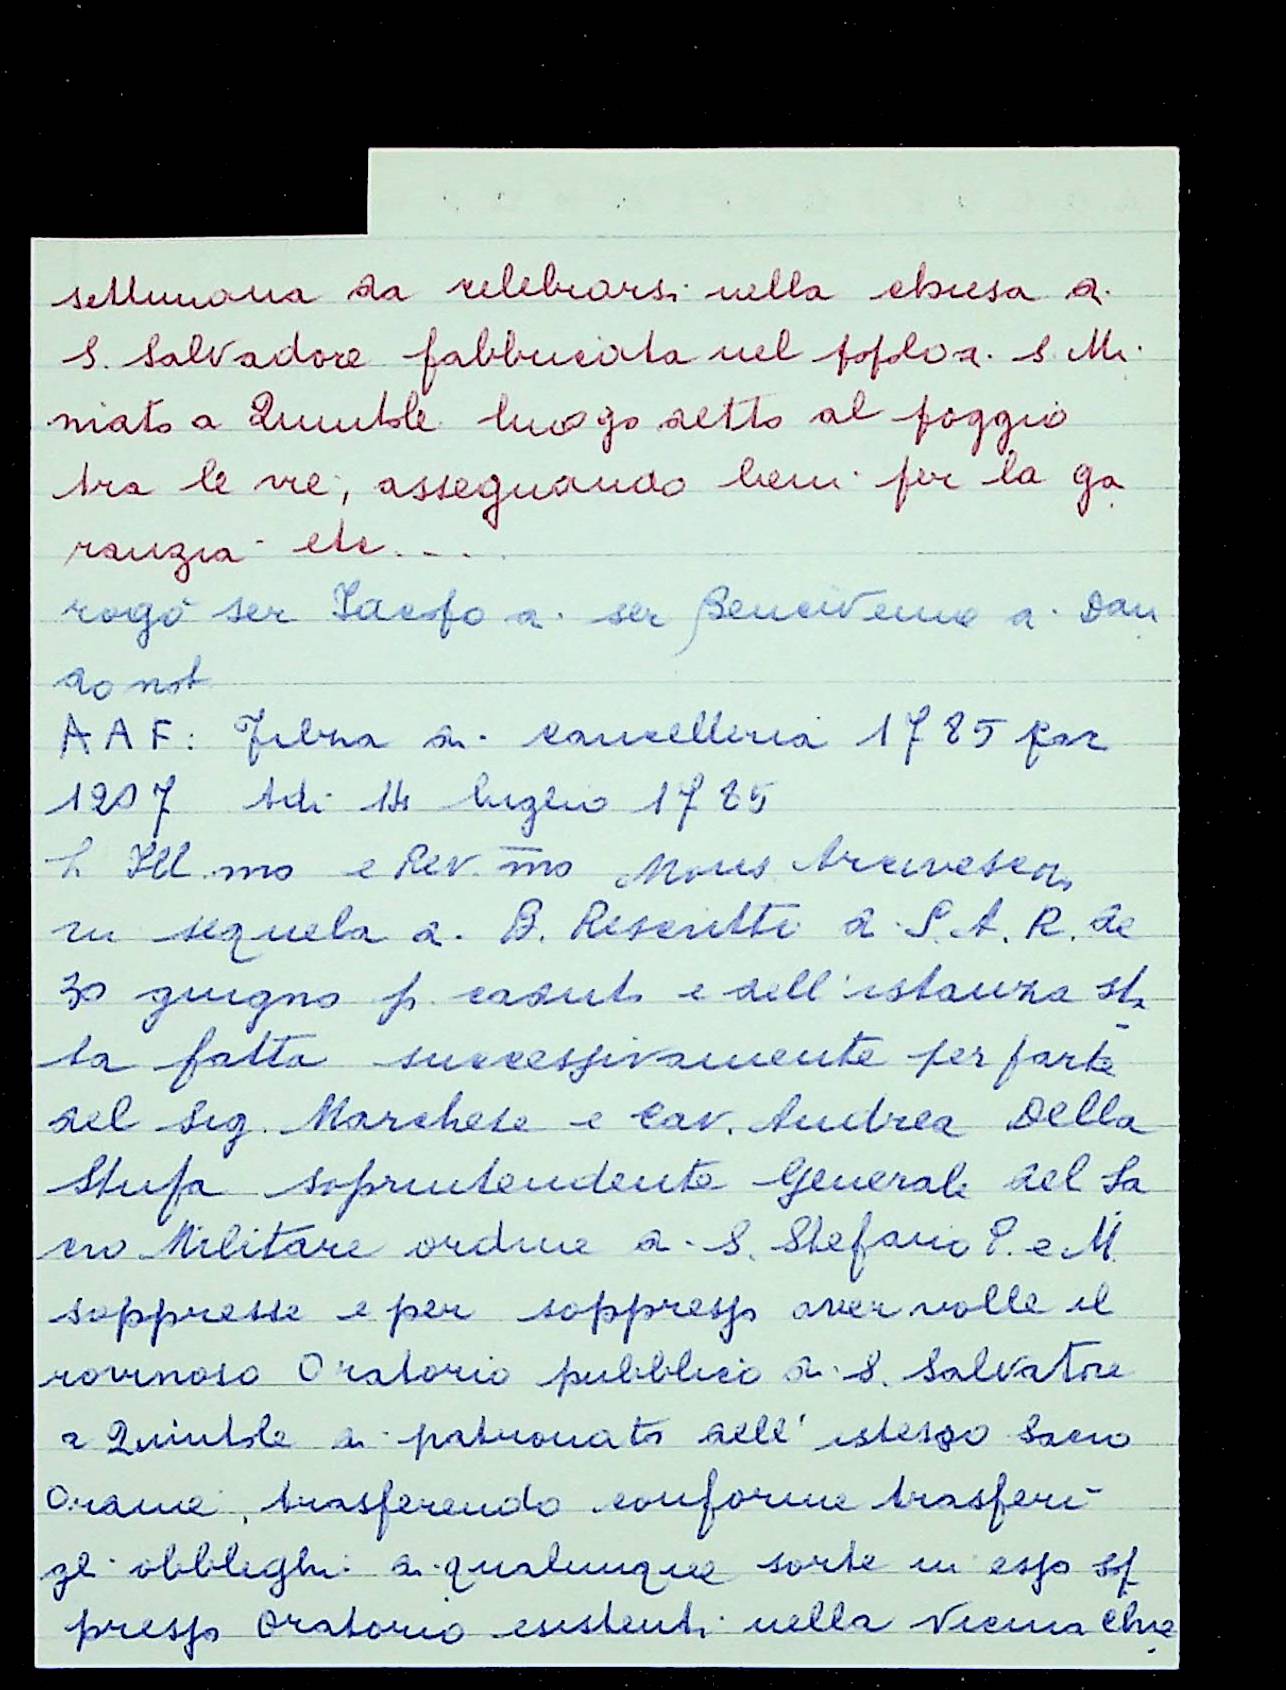 settimana da celebrarsi nella chiesa di
S. Salvadore fabbricata nel popolo di S. Mi
niato a Quintole luogo detto al poggio
tra le vie, assegnando beni per la ga
ranzia etc....
rogò ser Iacopo di ser Bencivenne di Dan
do not
AAF: Filza di cancelleria 1785 par
1207 Adi 14 luglio 1785
L Ill.mo e Rev.mo Mons Arcivesco
in sequela di B. Rescritto di S. A. R. de
30 giugno p. caduto e dell'istanza sta
ta fatta successivamente per parte
del Sig. Marchese e Cav. Andrea Della
Stufa soprintendente Generale del Sa
cro Militare ordine di S. Stefano P. e M
soppresse e per soppresso aver volle il
rovinoso Oratorio pubblico di S. Salvatore
a Quintole di patronato dell'istesso Sacro
Ordine, trasferendo conforme trasferì
gl obblighi di qualunque sorte in esso sop
presso Oratorio esistenti nella vicina Chie